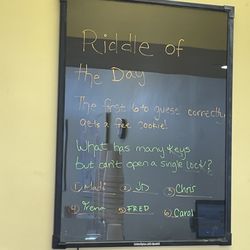 Riddle of
the Day
The first 6 to guess correctly
gets a free cookie!
What has many keys
but can't open a single lock?
① Madi ② JD ③ Chris
④ Irene ⑤ FRED ⑥ Carol